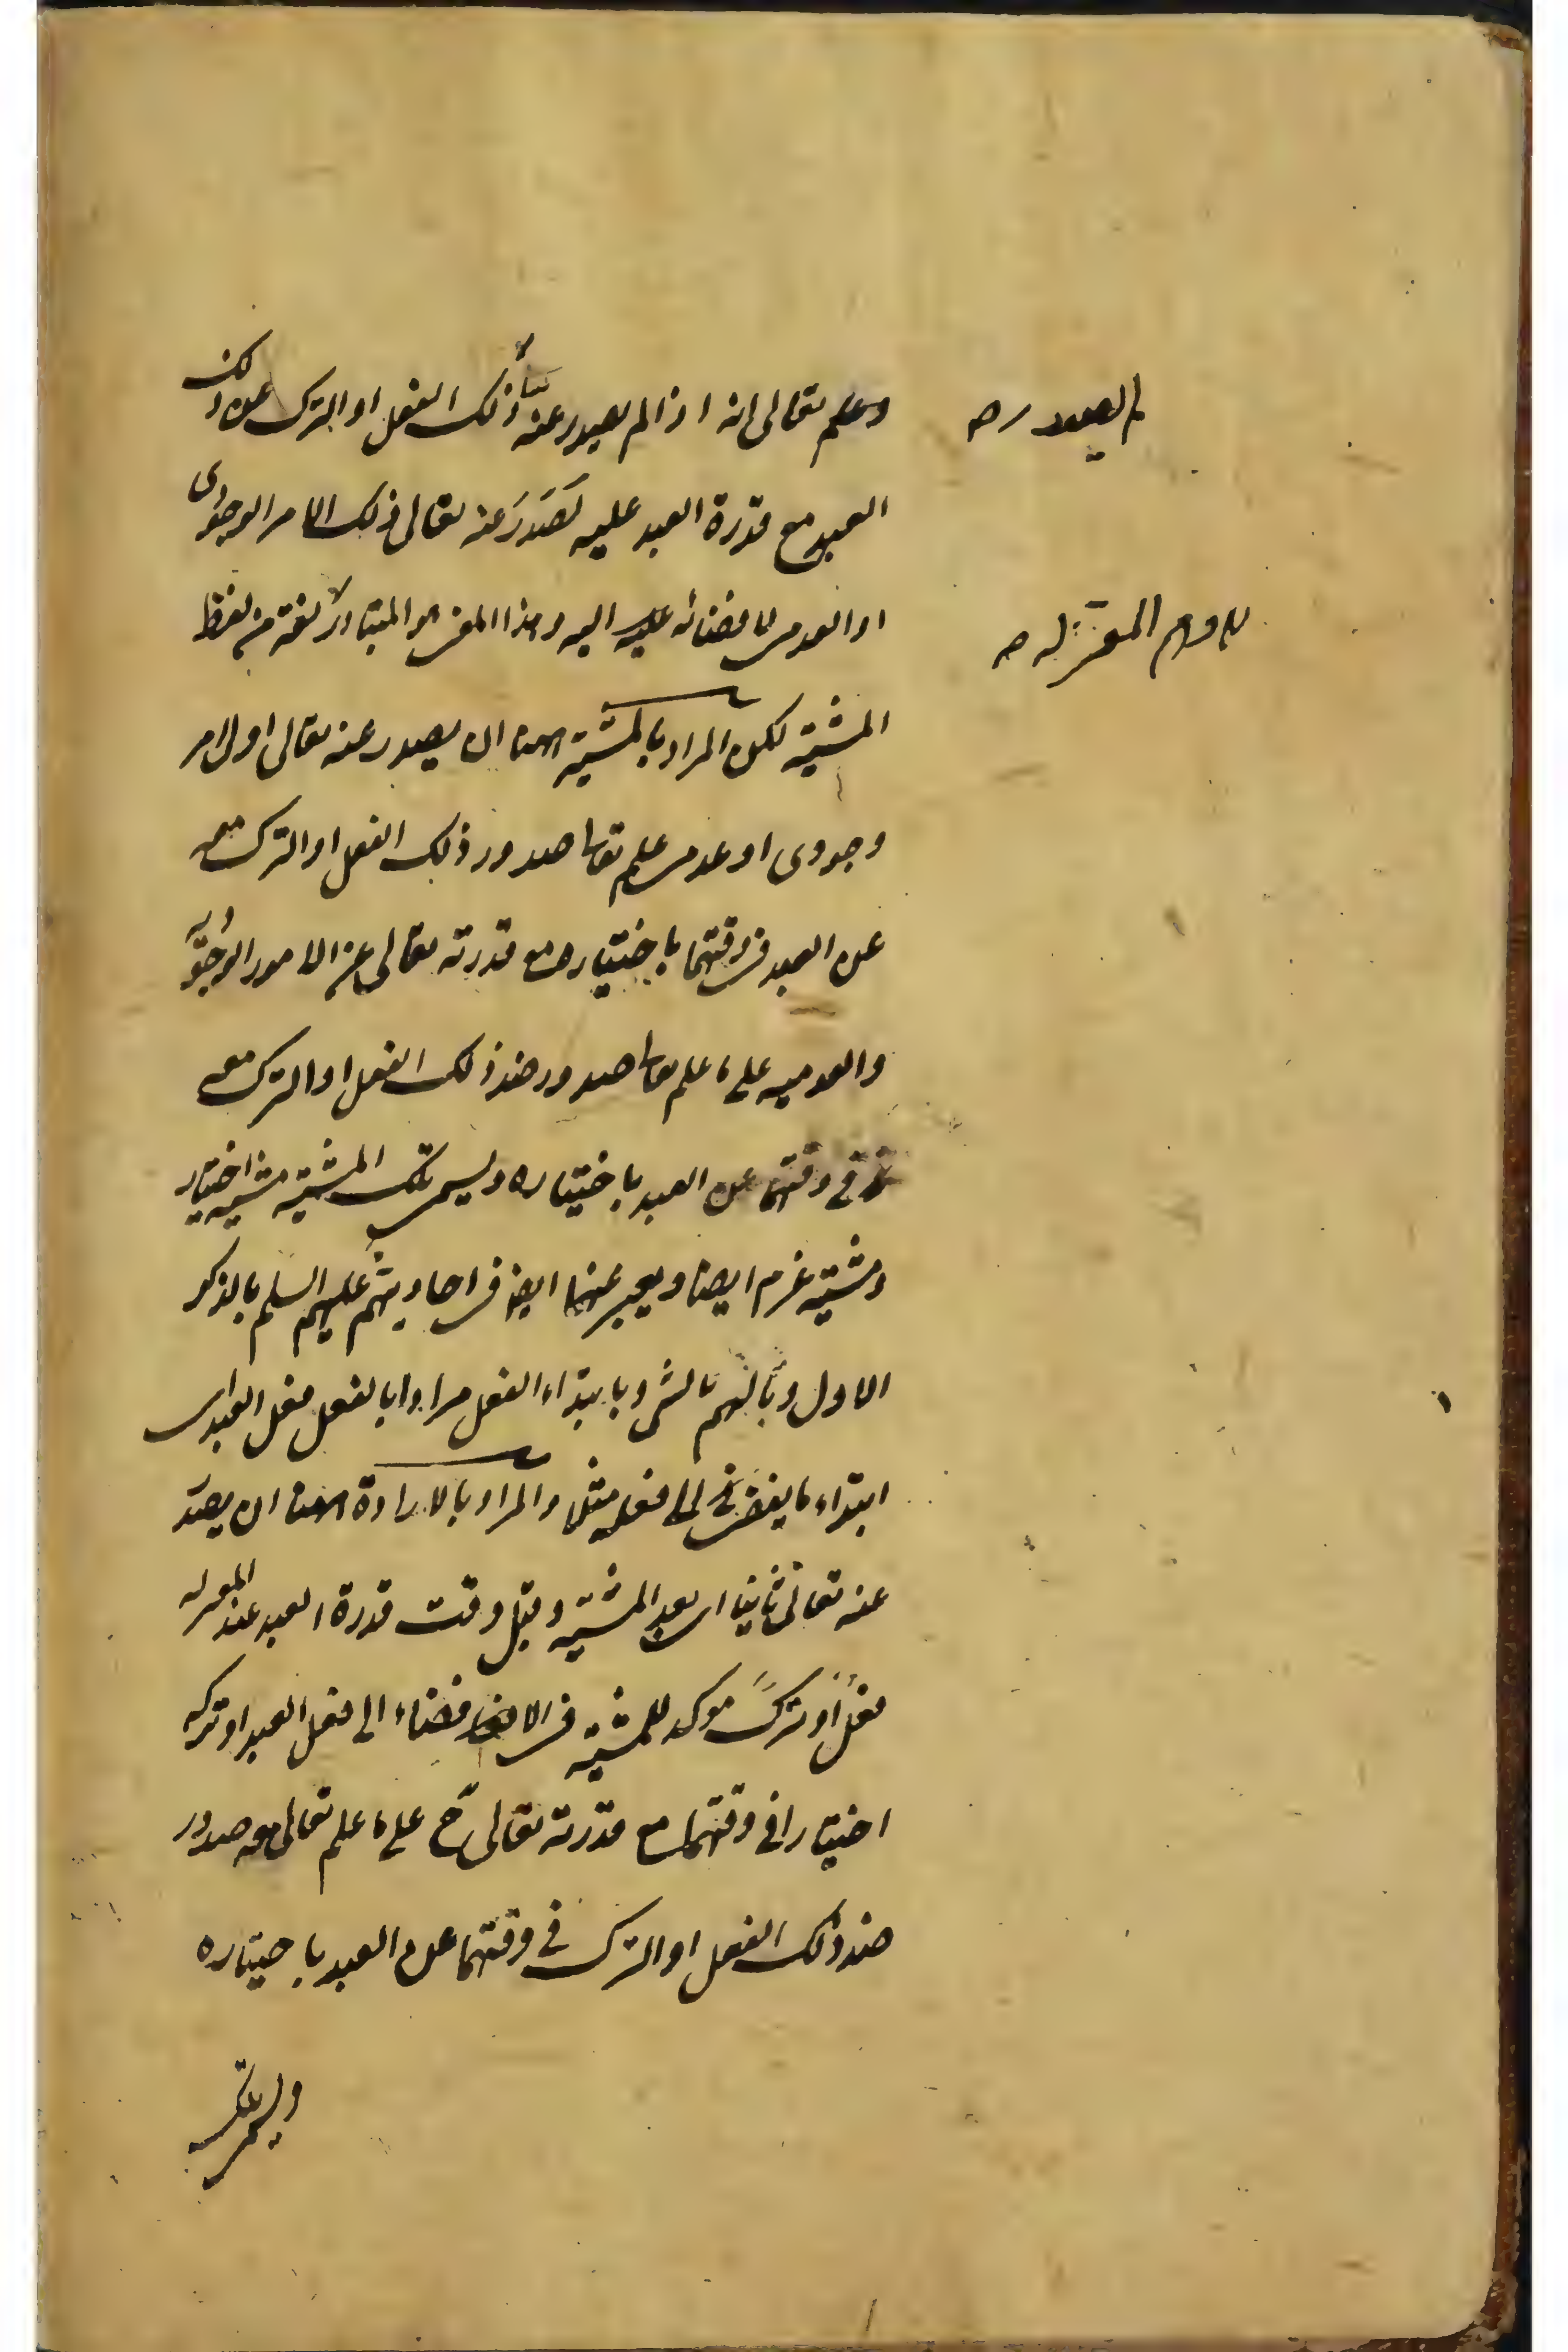 وعلم تعالى انه اذا لم يصدر عنه ذلك الفعل او الترك عن ذلك
العبد مع قدرة العبد عليه لصدر عنه تعالى ذلك الامر الوجودى
او العدمى لافضائه اليه وهذا المعنى هو المتبادر لغة من لفظ
المشية لكن المراد بالمشية هنا ان يصدر عنه تعالى اول امر
وجودى او عدمى علم تعا صدور ذلك الفعل او الترك معه
عن العبد فى وقتهما باختياره مع قدرته تعالى عن الامور الوجودية
والعدمية على ما علم تعا صدور ضد ذلك الفعل او الترك معه
فى وقتهما عن العبد باختياره ويسمى تلك المشية مشية اختيار
ومشية عزم ايضا ويعبر عنها ايضا فى احاديثهم عليهم السلم بالذكر
الاول وبالهم بالشى وبابتداء الفعل مرادا بالفعل فعل العبد اى
ابتداء ما يفضى الى فعله مثلا والمراد بالارادة هنا ان يصدر
عنه تعالى ثانيا اى بعد المشية وقبل وقت قدرة العبد عند المعتزلة
فعل او ترك موكد للمشية فى الافضاء الى فعل العبد او تركه
اختيارا فى وقتهما مع قدرته تعالى ح على ما علم تعالى معه صدور
ضد ذلك الفعل او الترك فى وقتهما عن العبد باختياره
ويسمى تلك
لم يصدر ص
المعتزلة ص